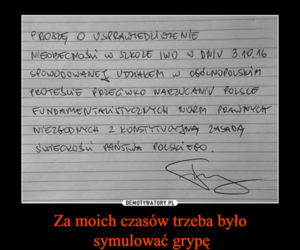 PROSZĘ O USPRAWIEDLIWIENIE
NIEOBECNOŚCI W SZKOLE IWO W DNIU 3.10.16
SPOWODOWANEJ UDZIAŁEM W OGÓLNOPOLSKIM
PROTEŚCIE PRZECIWKO NARZUCANIU POLSCE
FUNDAMENTALISTYCZNYCH NORM PRAWNYCH
NIEZGODNYCH Z KONSTYTUCYJNĄ ZASADĄ
ŚWIECKOŚCI PAŃSTWA POLSKIEGO.
DEMOTYWATORY.PL
Za moich czasów trzeba było
symulować grypę